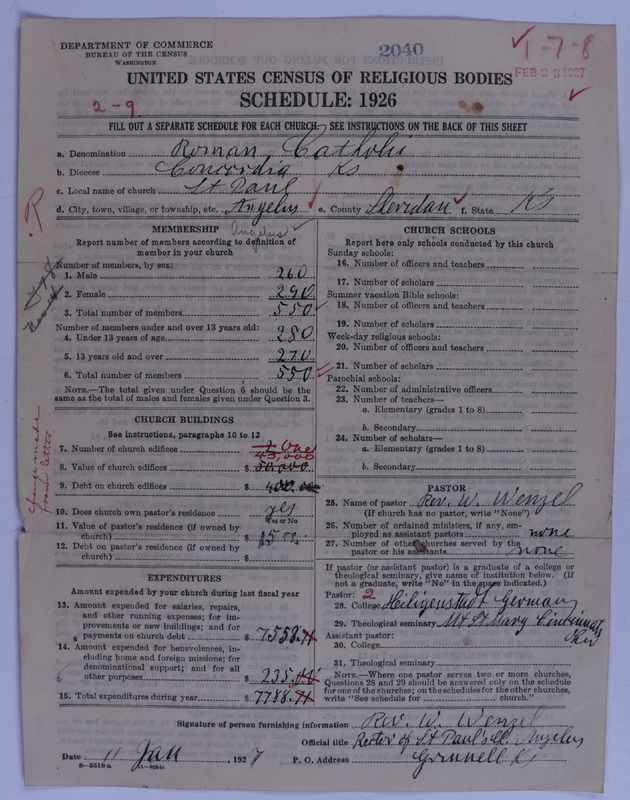 DEPARTMENT OF COMMERCE
BUREAU OF THE CENSUS
WASHINGTON
2040
1-7-8
FEB 23 1927
UNITED STATES CENSUS OF RELIGIOUS BODIES
SCHEDULE: 1926
2-9
FILL OUT A SEPARATE SCHEDULE FOR EACH CHURCH. SEE INSTRUCTIONS ON THE BACK OF THIS SHEET
a. Denomination Roman Catholic
b. Diocese Concordia Ks
c. Local name of church St Paul
d. City, town, village, or township, etc. Angelus e. County Sheridan f. State Ks
Angelus
R
MEMBERSHIP
Report number of members according to definition of member in your church
Number of members, by sex:
1. Male 260
2. Female 290
3. Total number of members 550
Number of members under and over 13 years old:
4. Under 13 years of age 280
5. 13 years old and over 270
6. Total number of members 550
NOTE.—The total given under Question 6 should be
same as the total of males and females given under Question 3.
CHURCH BUILDINGS
See instructions, paragraphs 10 to 12
7. Number of church edifices 1 One
45,000
8. Value of church edifices $ 50,000
9. Debt on church edifices $ 400.00
10. Does church own pastor's residence yes
Yes or No
11. Value of pastor's residence (if owned by
church) $ 1500.
12. Debt on pastor's residence (if owned by
church) $
Change made
from letter
EXPENDITURES
Amount expended by your church during last fiscal year
13. Amount expended for salaries, repairs,
and other running expenses; for im-
provements or new buildings; and for
payments on church debt $ 7553.74
14. Amount expended for benevolences, in-
cluding home and foreign missions; for
denominational support; and for all
other purposes $ 235.00
15. Total expenditures during year $ 7788.74
CHURCH SCHOOLS
Report here only schools conducted by this church
Sunday schools:
16. Number of officers and teachers
17. Number of scholars
Summer vacation Bible schools:
18. Number of officers and teachers
19. Number of scholars
Week-day religious schools:
20. Number of officers and teachers
21. Number of scholars
Parochial schools:
22. Number of administrative officers
23. Number of teachers—
a. Elementary (grades 1 to 8)
b. Secondary
24. Number of scholars—
a. Elementary (grades 1 to 8)
b. Secondary
PASTOR
25. Name of pastor Rev. W. Wenzel
(If church has no pastor, write "None")
26. Number of ordained ministers, if any, em-
ployed as assistant pastors none
27. Number of other churches served by the
pastor or his assistants none
If pastor (or assistant pastor) is a graduate of a college or
theological seminary, give name of institution below. (If
not a graduate, write "No" in the space indicated.)
Pastor: 2
28. College Heiligenstadt Germany
29. Theological seminary Mt St Mary Cincinnati
Assistant pastor:
30. College
31. Theological seminary
NOTE.—Where one pastor serves two or more churches,
Questions 28 and 29 should be answered only on the schedule
for one of the churches; on the schedules for the other churches,
write "See schedule for church."
Signature of person furnishing information Rev. W. Wenzel
Official title Rector of St Paul's Ch. Angelus
Date 11 Jan, 1927 P. O. Address Grinnell Ks
8-5518a